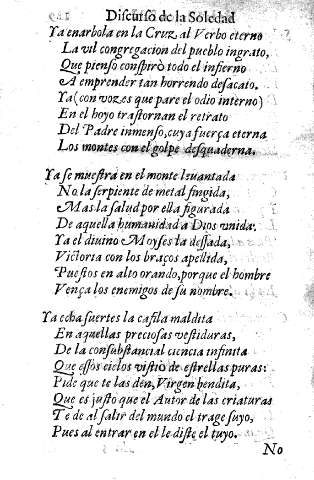 Discurso de la Soledad
Ya enarbola en la Cruz al Verbo eterno
La vil congregacion del pueblo ingrato,
Que pienso conspirò todo el infierno
A emprender tan horrendo desacato.
Ya (con vozes que pare el odio interno)
En el hoyo trastornan el retrato
Del Padre inmenso, cuya fuerça eterna
Los montes con el golpe desquaderna.
Ya se muestra en el monte leuantada
No la serpiente de metal fingida,
Mas la salud por ella figurada
De aquella humanidad a Dios vnida.
Ya el diuino Moyses la dessada,
Victoria con los braços apellida,
Puestos en alto orando, porque el hombre
Vença los enemigos de su nombre.
Ya echa suertes la cafila maldita
En aquellas preciosas vestiduras,
De la consubstancial ciencia infinita
Que essos cielos vistiò de estrellas puras:
Pide que te las den, Virgen bendita,
Que es justo que el Autor de las criaturas
Te de al salir del mundo el trage suyo,
Pues al entrar en el le diste el tuyo.
No